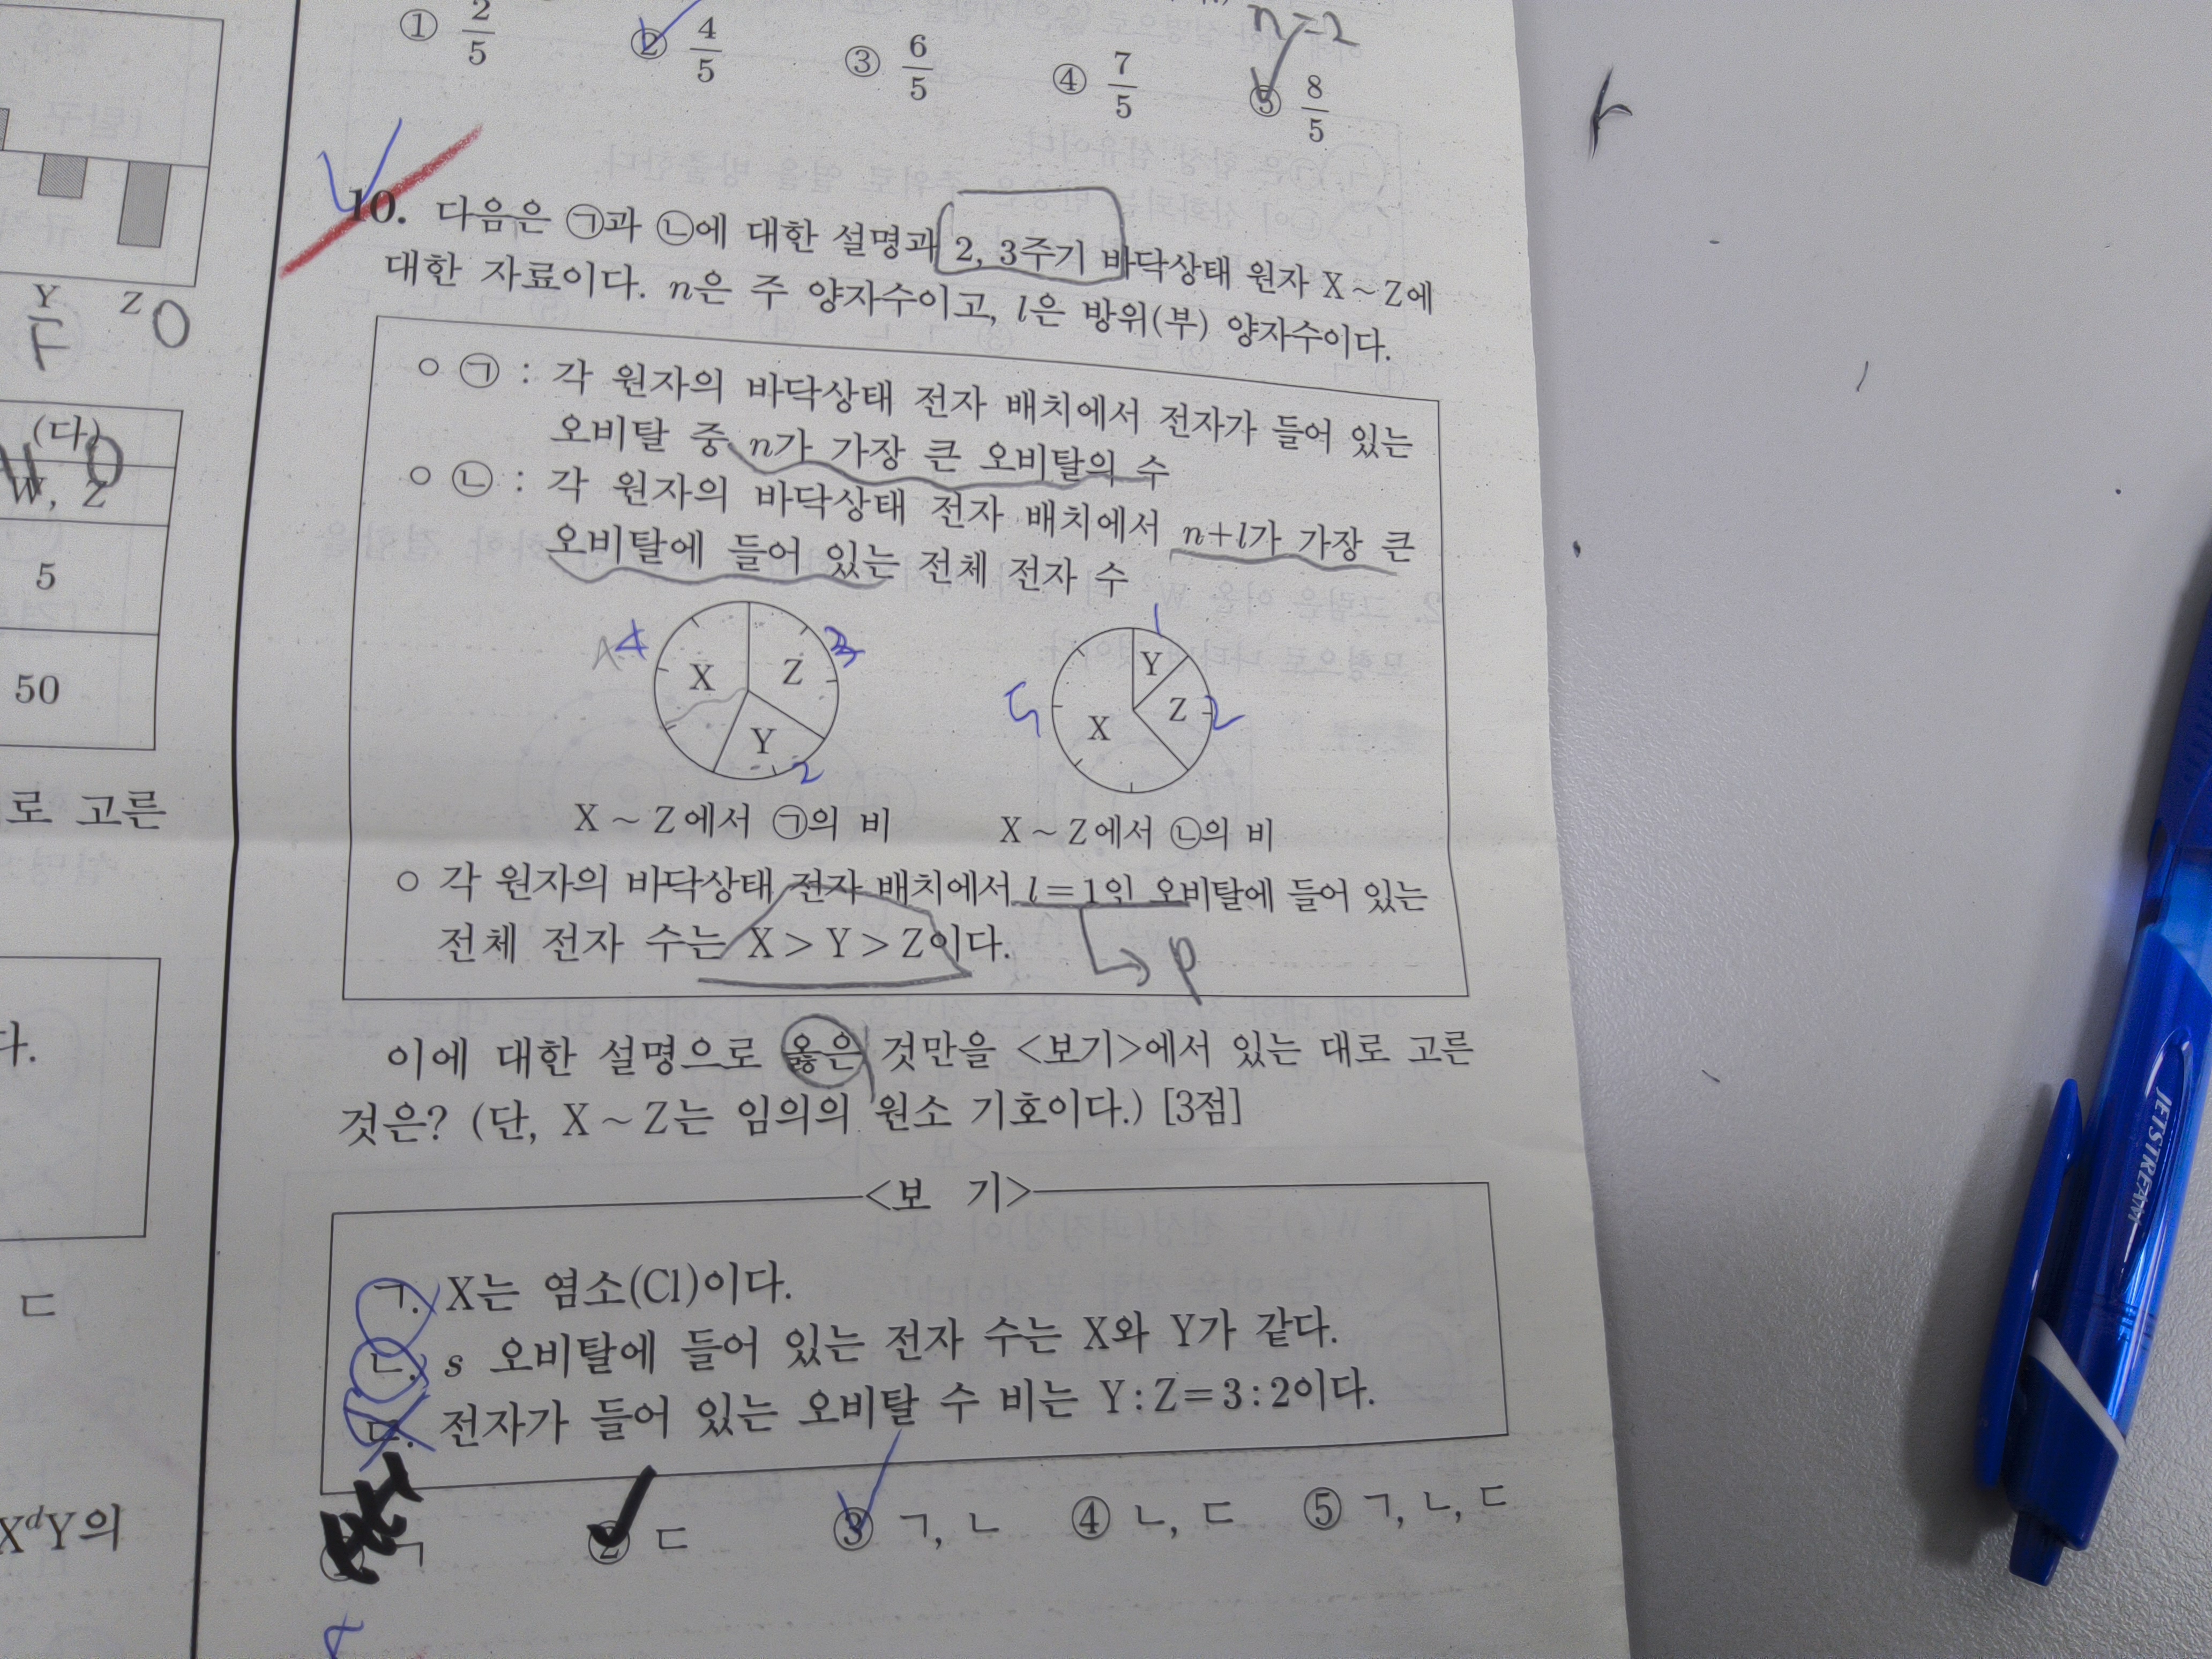 ① 2/5 ② 4/5 ③ 6/5 ④ 7/5 ⑤ 8/5
n=2
10. 다음은 ㉠과 ㉡에 대한 설명과 2, 3주기 바닥상태 원자 X ~ Z에
대한 자료이다. n은 주 양자수이고, l은 방위(부) 양자수이다.
○ ㉠ : 각 원자의 바닥상태 전자 배치에서 전자가 들어 있는
오비탈 중 n가 가장 큰 오비탈의 수
○ ㉡ : 각 원자의 바닥상태 전자 배치에서 n+l가 가장 큰
오비탈에 들어 있는 전체 전자 수
4 X Z 3 Y 2
1 Y Z 2 X 5
X ~ Z에서 ㉠의 비
X ~ Z에서 ㉡의 비
○ 각 원자의 바닥상태 전자 배치에서 l=1인 오비탈에 들어 있는
전체 전자 수는 X > Y > Z이다.
p
이에 대한 설명으로 옳은 것만을 <보기>에서 있는 대로 고른
것은? (단, X ~ Z는 임의의 원소 기호이다.) [3점]
<보 기>
ㄱ. X는 염소(Cl)이다.
ㄴ. s 오비탈에 들어 있는 전자 수는 X와 Y가 같다.
ㄷ. 전자가 들어 있는 오비탈 수 비는 Y : Z = 3 : 2이다.
① ㄱ ② ㄷ ③ ㄱ, ㄴ ④ ㄴ, ㄷ ⑤ ㄱ, ㄴ, ㄷ
Y Z O
F
(다)
W, Z
5
50
로 고른
다.
ㄷ
XᵈY의
JETSTREAM